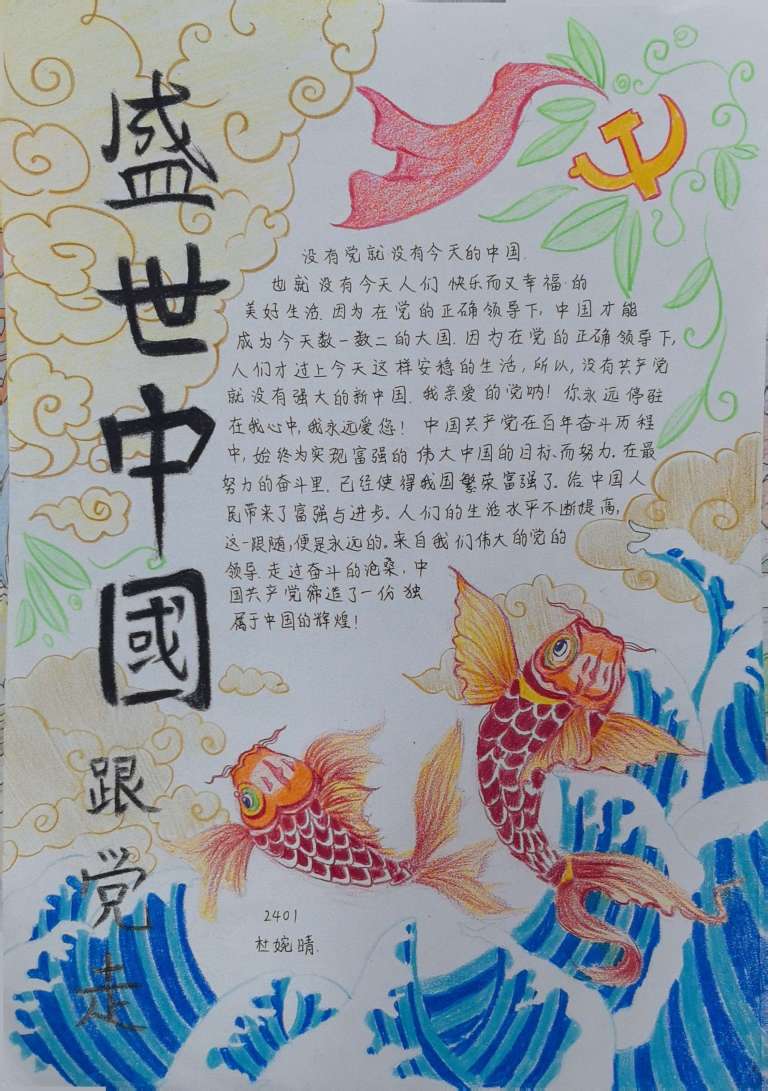 盛世中國
跟党走
没有党就没有今天的中国.
也就没有今天人们快乐而又幸福的
美好生活.因为在党的正确领导下,中国才能
成为今天数一数二的大国.因为在党的正确领导下,
人们才过上今天这样安稳的生活,所以,没有共产党
就没有强大的新中国.我亲爱的党呐!你永远停驻
在我心中,我永远爱您!中国共产党在百年奋斗历程
中,始终为实现富强的伟大中国的目标而努力.在最
努力的奋斗里.已经使得我国繁荣富强了.给中国人
民带来了富强与进步.人们的生活水平不断提高,
这一跟随,便是永远的.来自我们伟大的党的
领导.走过奋斗的沧桑,中
国共产党缔造了一份独
属于中国的辉煌!
2401
杜婉晴.